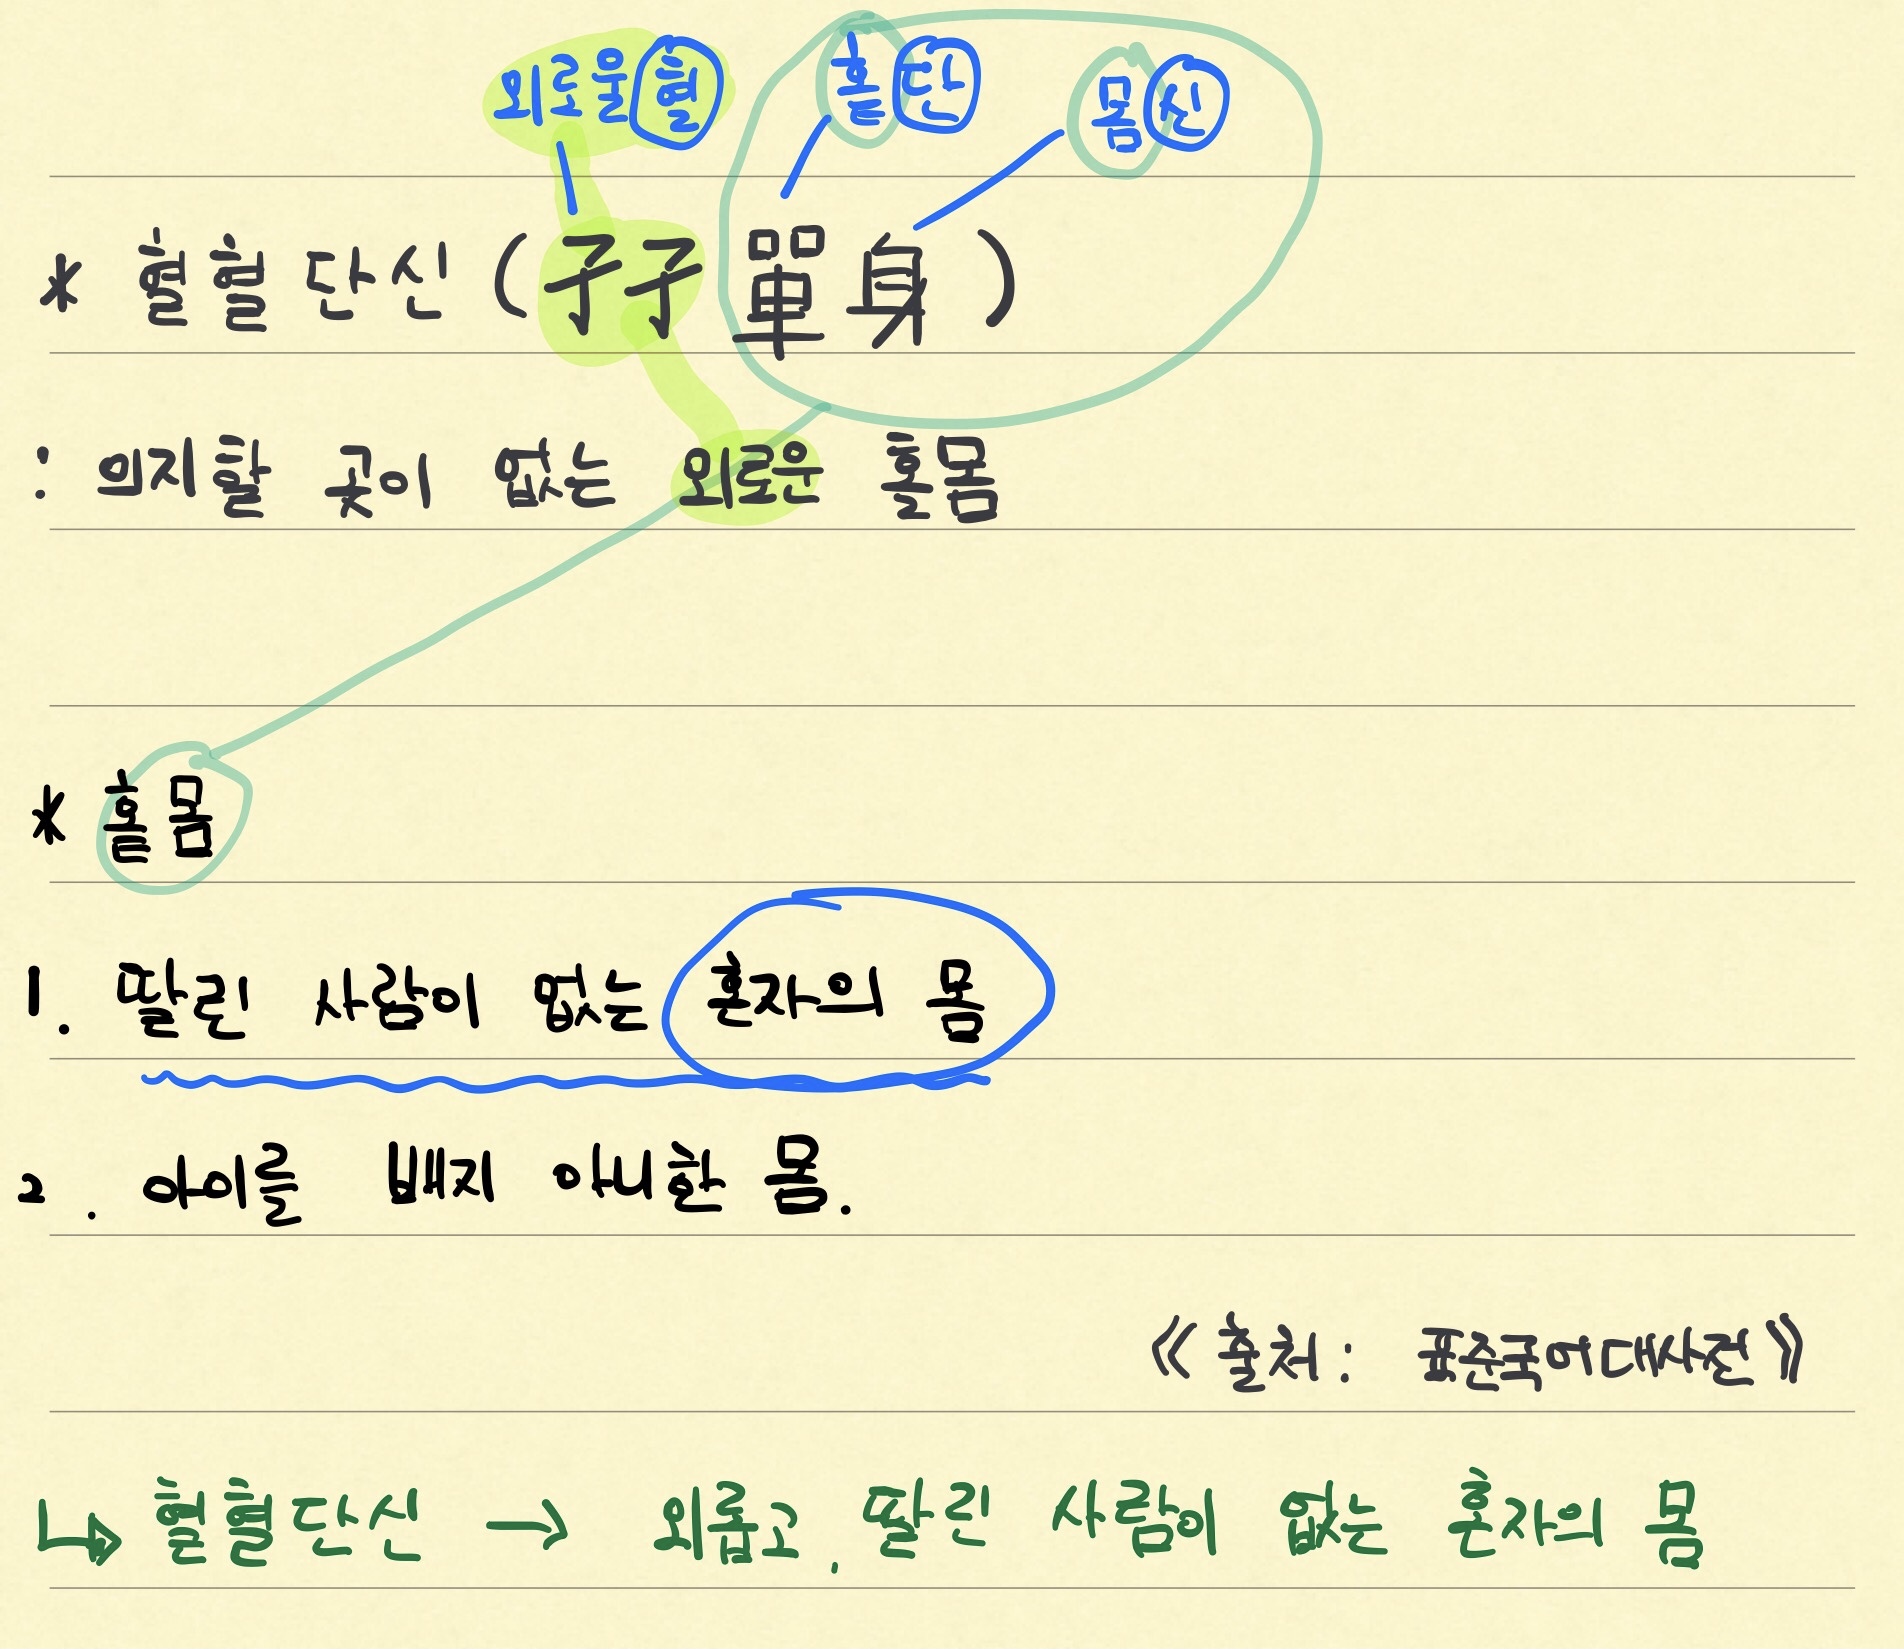 외로울 혈 홑 단 몸 신
* 혈혈단신 (孑孑單身)
: 의지할 곳이 없는 외로운 홀몸
* 홑몸
1. 딸린 사람이 없는 혼자의 몸
2. 아이를 배지 아니한 몸.
《출처: 표준국어대사전》
↳ 혈혈단신 → 외롭고, 딸린 사람이 없는 혼자의 몸